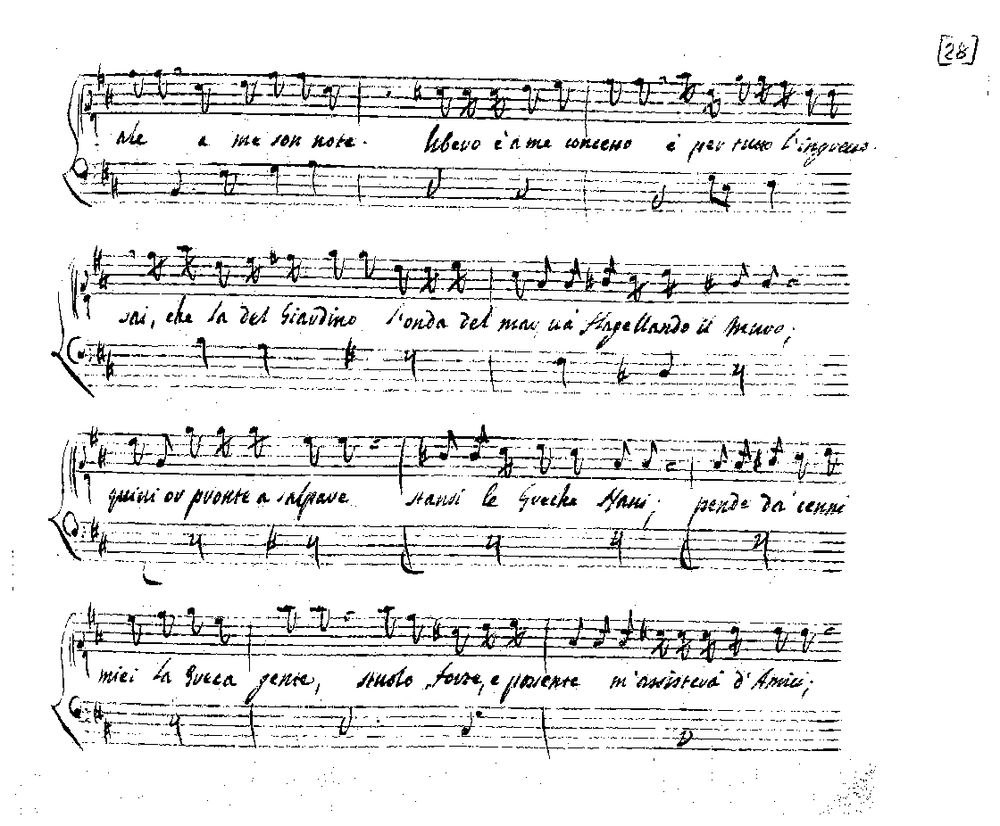 [28]
ate a me son note. libero è a me concesso è per tutto l'ingresso.
sai, che la del Giardino l'onda del mar, và flagellando il Muro;
quivi or pronte a salpare stansi le Greche Navi; pende da' cenni
miei la Greca gente, stuolo forte, e possente m'assisterà d'Amici;